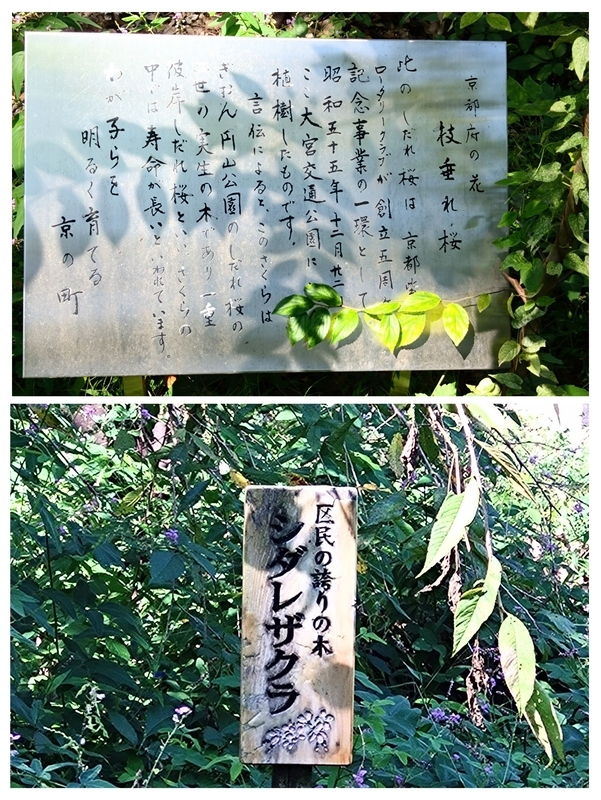 京都府の花
枝垂れ桜
此のしだれ桜は 京都紫
ロータリークラブが 創立五周
記念事業の一環として
昭和五十五年十二月廿二
ここ大宮交通公園に
植樹したものです。
言伝によると、このさくらは
ぎおん円山公園のしだれ桜の
世の実生の木であり 一重
彼岸しだれ桜といい さくらの
中では 寿命が長いといわれています。
わが子らを
明るく育てる
京の町
区民の誇りの木
シダレザクラ